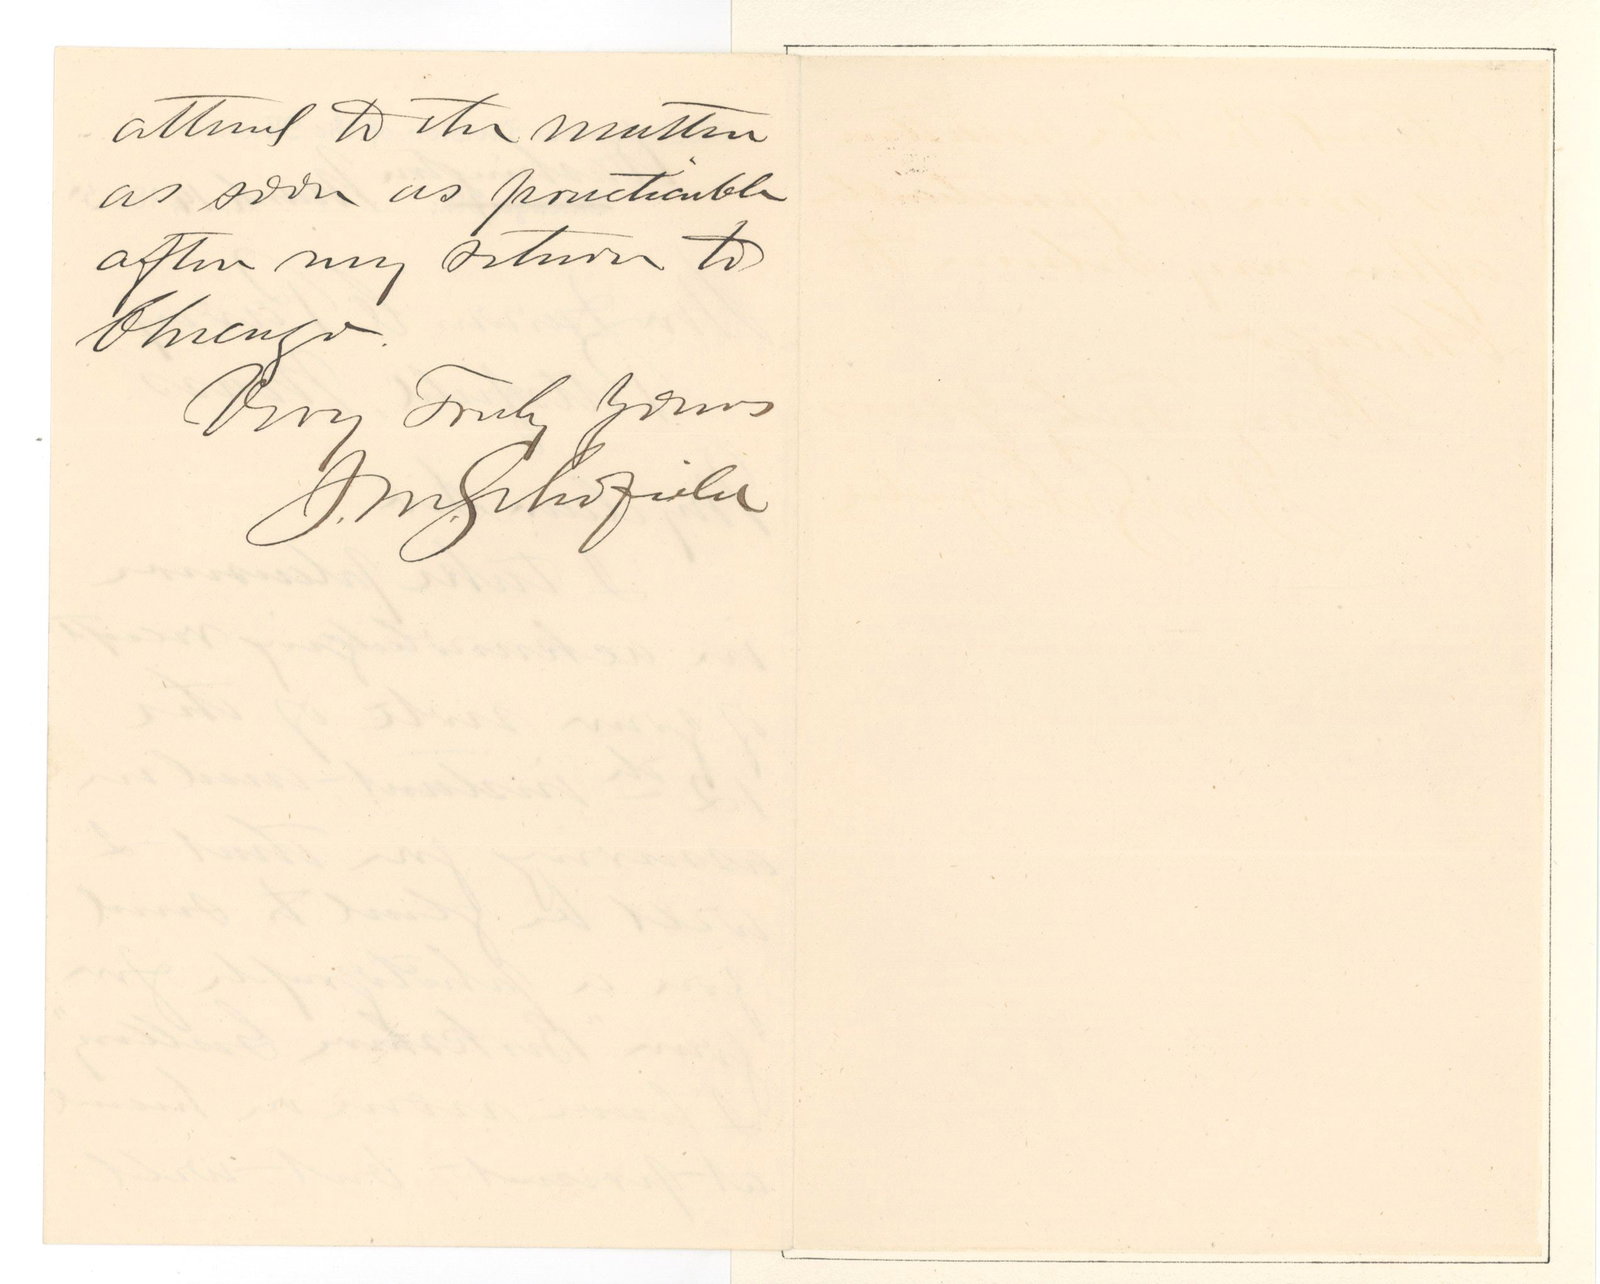 attend to the matter
as soon as practicable
after my return to
Chicago.
Very Truly Yours
J. M. Schofield